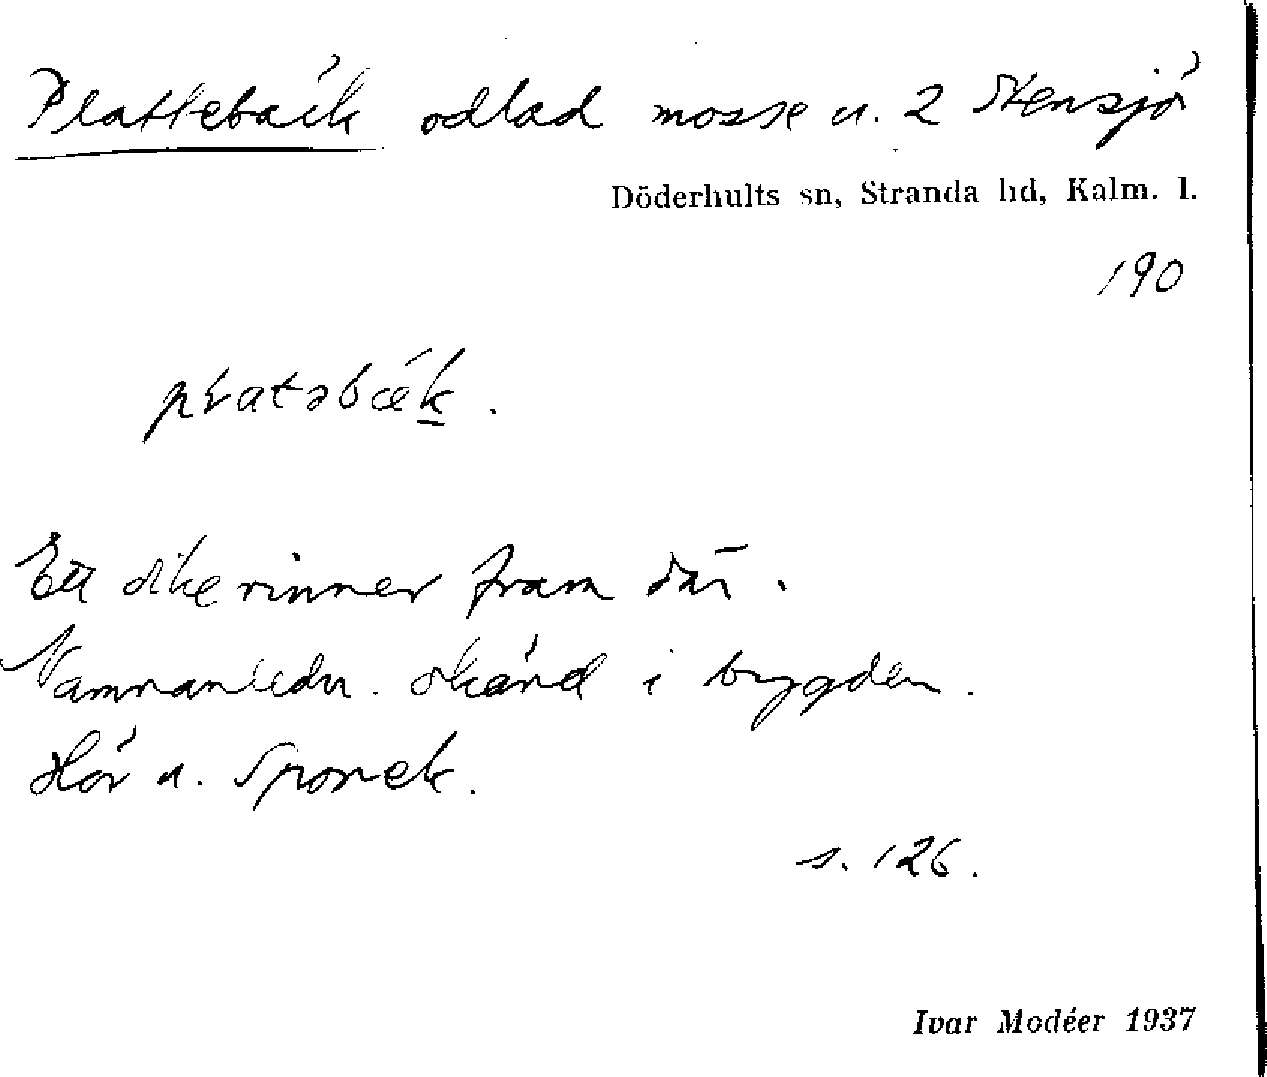 Plattebäck odlad mosse u. 2 Stensjö
Döderhults sn, Stranda hd, Kalm. l.
190
platəbæk.
Ett dike rinner fram där.
Namnanledn. okänd i bygden.
Hör u.
s. 126.
Ivar Modéer 1937